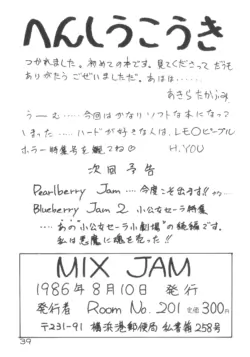 へんしうこうき
つかれました。初めての本です。見てくださって どうも
ありがとう ございましただ。あはは……
あきら たかふみ
うーむ……今回は かなり ソフトな本になって
しまった……ハードが好きな人は、LEOピープル
ホラー特集号を観てね♡ H.YOU
次回予告
Pearlberry Jam …… 今度こそ出ます!!
Blueberry Jam 2 小公女セーラ特集
……あの"小公女セーラ小劇場"の続編です。
私は悪魔に魂を売った!!
MIX JAM
1986年8月10日 発行
発行者 Room No.201 定価300円
〒231-91 横浜港郵便局 私書箱258号
39